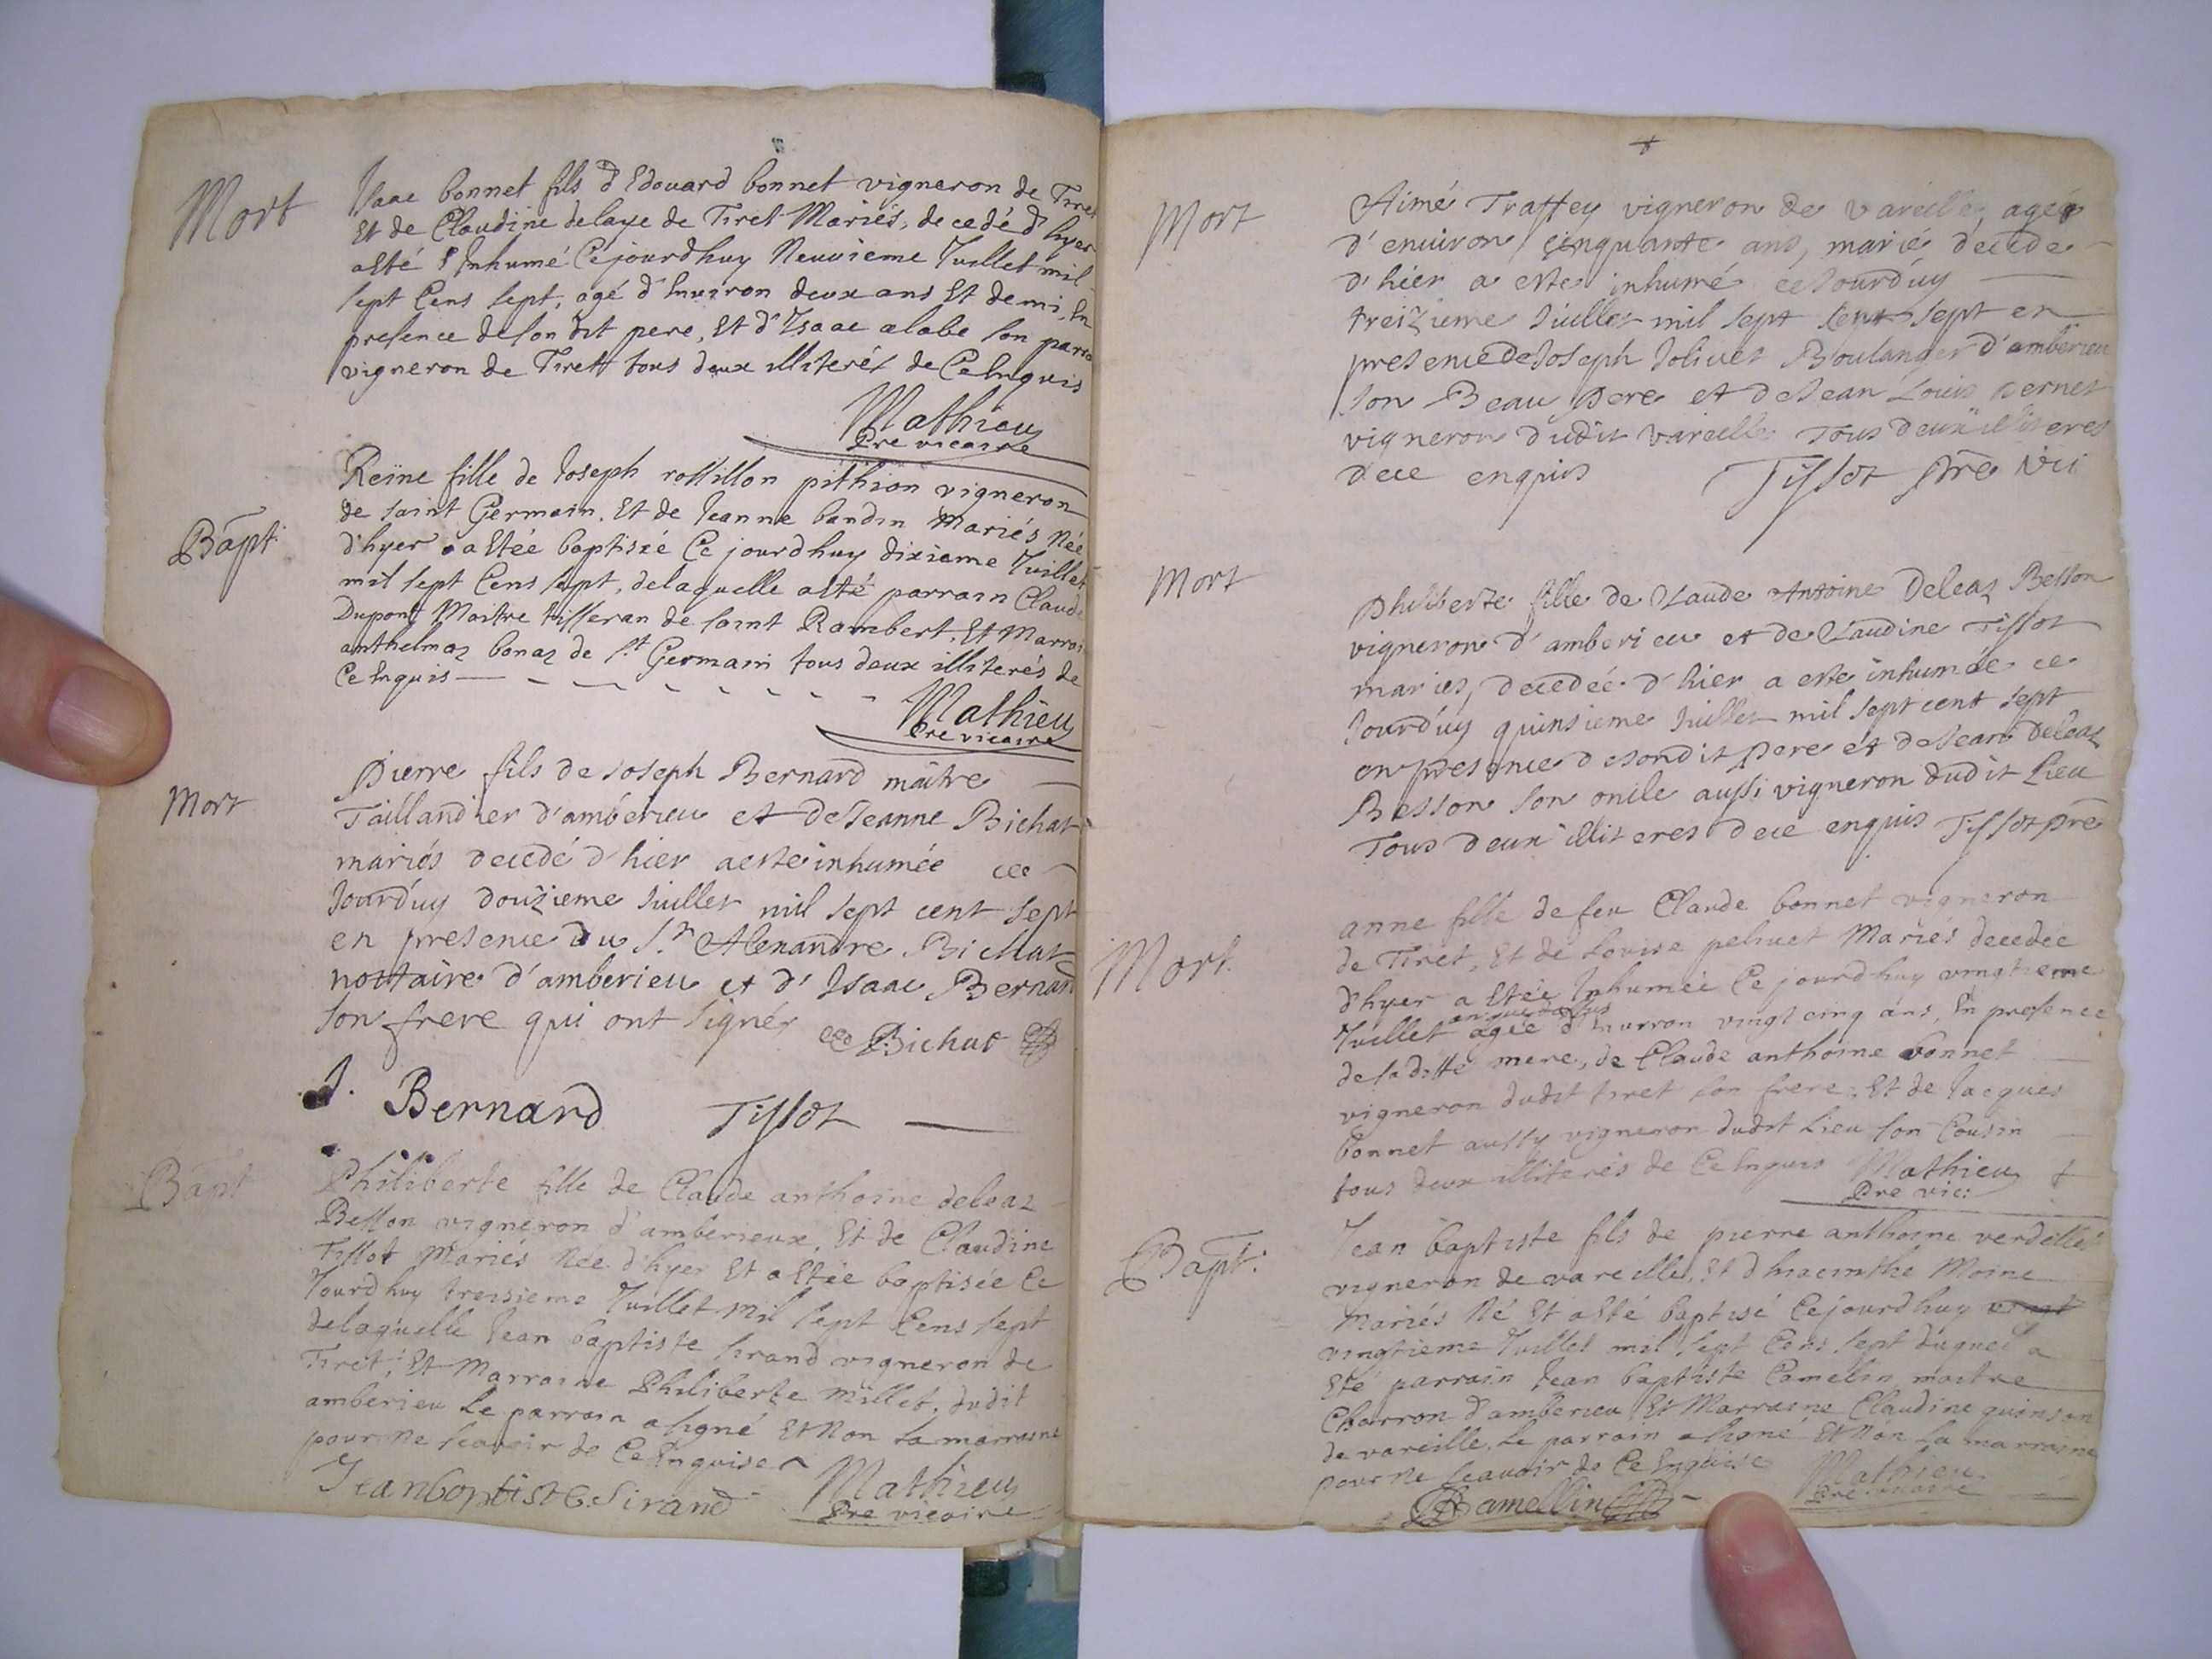 Mort
Isaac bonnet fils d'Edouard bonnet vigneron de Tiret
Et de Claudine delaye de Tiret Mariés, decedé d'hyer
asté Inhumé Cejourdhuy Neuvieme Juillet mil
sept Cens sept, agé d'Environ deux ans Et demi, En
presence de son dit pere, Et d'Isaac alabe son
vigneron de Tirett tous deux illiterés de Ce Enquis
Mathieu
Pre vicaire
Bapt.
Reine fille de Joseph rossillon pithion vigneron
de saint Germain, Et de Jeanne bandin Mariés Née
d'hyer a Estée baptisée Ce jourdhuy dixieme Juillet
mil sept Cens sept, delaquelle asté parrain Claude
Dupont Maitre tisseran de saint Rambert, Et Marrai
anthelmaz bonaz de st Germain tous deux illiterés de
Ce Enquis
Mathieu
Pre vicaire
Mort
Pierre fils de Joseph Bernard maitre
Taillandier d'amberieu et de Jeanne Bichat
mariés decedé d'hier a esté inhumée ce
Jourd'uy douzieme Juillet mil sept cent sept
en presence du Sr Alexandre Bichat
nottaire d'amberieu et d'Isaac Bernard
son frere qui ont signéz Bichat
J. Bernard Tissot
Bapt
Philiberte fille de Claude anthoine deleaz
Besson vigneron d'amberieux, Et de Claudine
Tissot Mariés Née d'hyer Et a Estée baptisée Ce
Jourdhuy treisieme Juillet mil sept Cens sept
delaquelle Jean baptiste sirand vigneron de
Tiret, Et Marraine Philiberte millet, dudit
amberieu Le parrain a signé Et Non La marraine
pour Ne scavoir de Ce Enquise
Jean baptiste Sirand Mathieu
Pre vicaire
Mort
Aimé Traffey vigneron de vareille, agéz
d'environ cinquante ans, marié décedé
d'hier a esté inhumé ce Jourd'uy
treizieme Juillet mil sept cent sept en
presence de Joseph Jolivet Boulanger d'amberieu
son Beau pere et de Jean Louis pernet
vigneron dudit vareille Tous deux illiteres
de ce enquis Tissot pre vic
Mort
Philiberte fille de Claude Antoine Deleaz Besson
vigneron d'amberieu et de Claudine Tissot
mariés, decedée d'hier a esté inhumée ce
Jourd'uy quinsieme Juillet mil sept cent sept
en presence de son dit pere et de Jean Deleaz
Besson son oncle aussi vigneron dudit Lieu
Tous deux illiteres de ce enquis Tissot pre
Mort
anne fille de feu Claude bonnet vigneron
de Tiret, Et de Louise peluet Mariés decedée
d'hyer a Estée Inhumée Ce jourdhuy vingtieme
Juillet agée d'Environ vingt cinq ans, En presence
de sa ditte mere, de Claude anthoine bonnet
vigneron dudit tiret son frere, Et de Jacques
bonnet aussy vigneron dudit Lieu son Cousin
tous deux illiterés de Ce Enquis Mathieu
Pre vic:
Bapt:
Jean baptiste fils de pierre anthoine verdellet
vigneron de vareille, Et d'hiacinthe Moine
Mariés Né Et asté baptisé Cejourdhuy vingt
vingtieme Juillet mil sept Cens sept duquel a
Eté parrain Jean baptiste Camelin maitre
Charron d'amberieu Et Marraine Claudine quinson
de vareille, Le parrain a signé Et Non La marraine
pour Ne scavoir de Ce Enquise Mathieu
Pre vicaire
Camellin